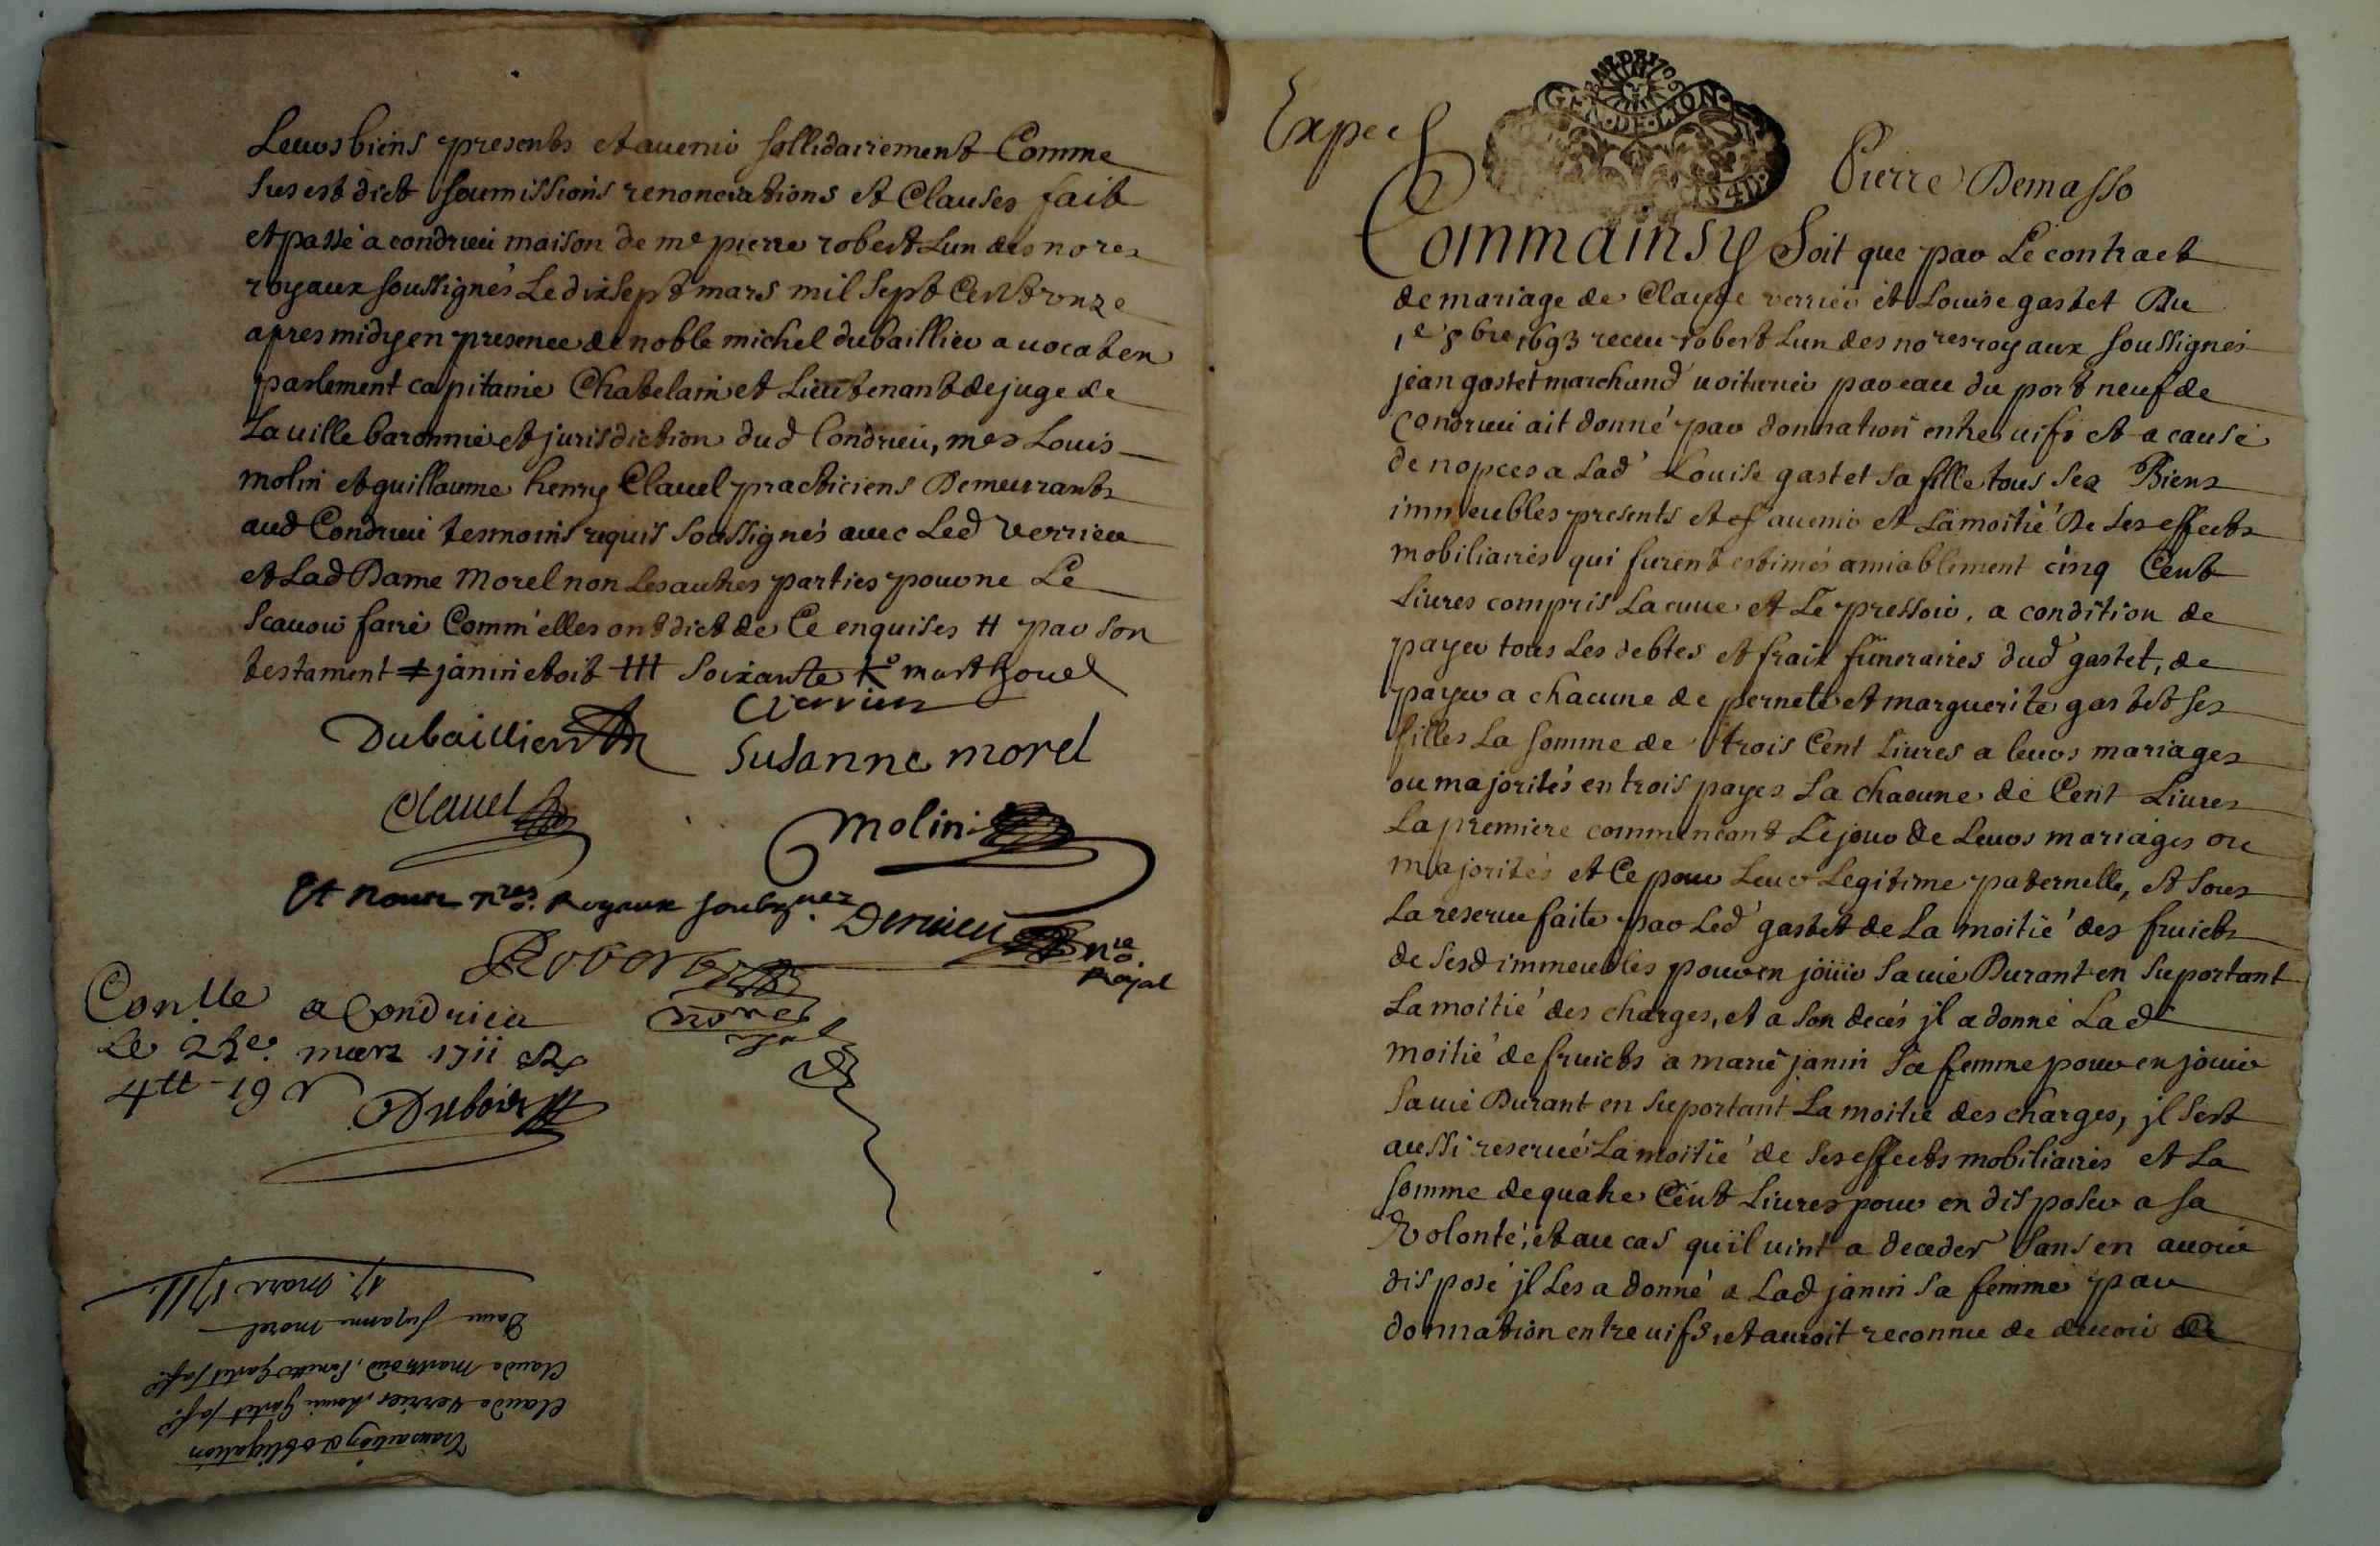 Leurs biens presents et avenir sollidairement Comme
Sus est dict soumissions renonciations et Clauses fait
et passé a condrieu maison de me pierre robert Lun des nores
royaux soussignés Le dixsept mars mil sept Cent onze
apres midy en presence de noble michel dubaillier avocat en
parlement capitaine Chatelain et Lieutenant de juge de
La ville baronnie et jurisdiction dud Condrieu, mes Louis
molin et guillaume henry Clavel practiciens Demeurants
aud Condrieu tesmoins requis soussignés avec Led verrier
et Lad Dame Morel non Les autres parties pour ne Le
scavoir faire Comm'elles ont dict de Ce enquises # par son
testament ≠ janin etoit ### soixante marthoud
Verrier
Dubaillier
Susanne morel
Clavel
Molin
Et nous nres. Royaux soubsnez
Derieu nre. Royal
Robert
nore
Conlle a Condrieu
Le mars 1711
4tt - 19
Dubois
Transaction & obligation
Claude verrier, Louise Gastet sa fe.
Claude Marthoud, Pernette Gastet sa fe.
Dame Suzanne morel
17. Mars 1711.
Exped
GNĀ. DE LYON
Pierre Demasso
Comm ainsy Soit que par Le contract
de mariage de Claude verrier et Louise gastet Du
1e 8bre 1693 receu robert Lun des nores royaux soussignés
jean gastet marchand voiturier par eau du port neuf de
Condrieu ait donné par donnation entre vifs et a cause
de nopces a Lad Louise gastet sa fille tous ses Biens
immeubles presents et avenir et La moitié De ses effects
mobiliaires qui furent estimés amiablement cinq Cent
Livres compris La cuve et Le pressoir, a condition de
payer tous Les debtes et fraix funeraires dud gastet, de
payer a chacune de pernete et marguerite gastet ses
filles La somme de trois Cent Livres a leurs mariages
ou majorités en trois payes La chacune de Cent Livres
La premiere commencant Le jour de Leurs mariages ou
majorités et Ce pour Leur Legitime paternelle, et sous
La reserve faite par Led gastet de La moitié des fruicts
de sesd immeubles pour en jouir sa vie Durant en suportant
La moitié des charges, et a son decés jl a donné Lad
moitié de fruicts a marie janin sa femme pour en jouir
sa vie Durant en suportant La moitié des charges, jl sest
aussi reservé La moitié de ses effects mobiliaires et La
somme de quatre Cent Livres pour en disposer a sa
Volonté, et au cas quil vint a deceder sans en avoir
disposé jl Les a donné a Lad janin sa femme par
donnation entre vifs, et auroit reconnu de devoir de